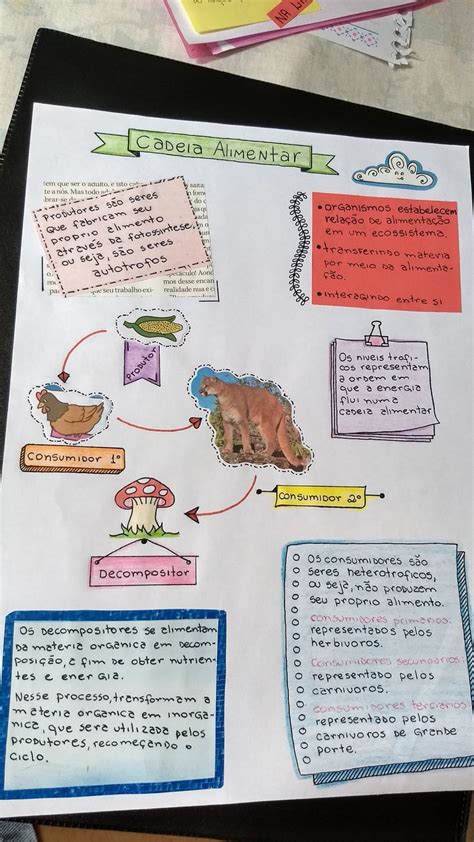 Cadeia Alimentar
Produtores são seres
que fabricam seu
proprio alimento
através da fotossintese,
ou seja, são seres
autotrofos
• organismos estabelecem
relação de alimentação
em um ecossistema.
• transferindo materia
por meio da alimenta-
ção.
• interagindo entre si
Produtor
Os niveis trofi-
cos representam
a ordem em
que a energia
flui numa
cadeia alimentar
Consumidor 1º
Consumidor 2º
Decompositor
Os consumidores são
seres heterotroficos,
ou seja, não produzem
seu proprio alimento.
consumidores primarios:
representados pelos
herbivoros.
Consumidores secundarios
representado pelos
carnivoros.
consumidores terciarios
representado pelos
carnivoros de Grande
porte.
Os decompositores se alimentam
da materia organica em decom-
posição, a fim de obter nutrien-
tes e energia.
Nesse processo, transformam a
materia organica em inorga-
nica, que sera utilizada pelos
produtores, recomeçando o
ciclo.